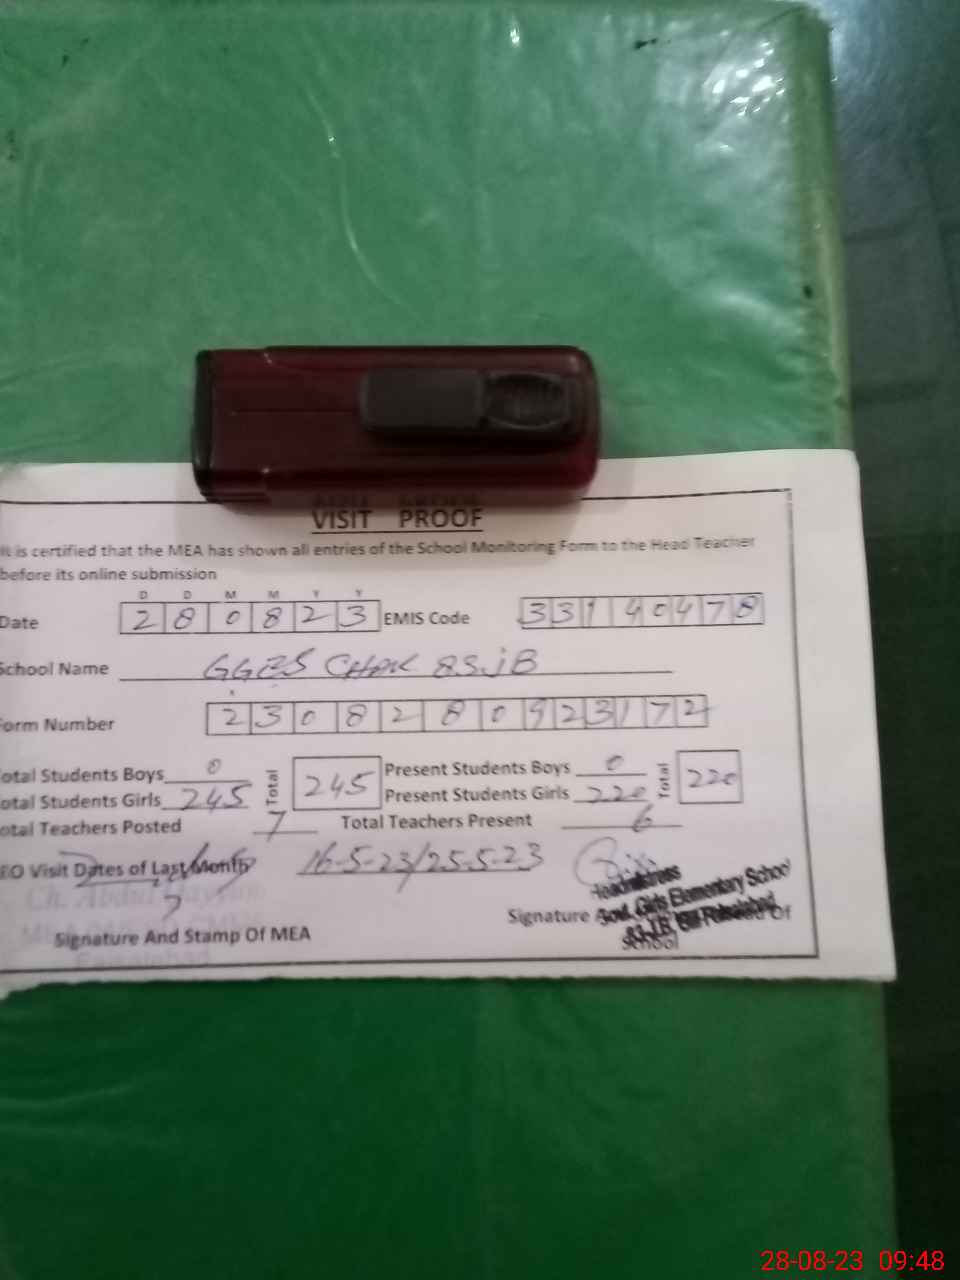 VISIT PROOF
It is certified that the MEA has shown all entries of the School Monitoring Form to the Head Teacher
before its online submission
D D M M Y Y
Date 280823 EMIS Code 33140478
School Name GGES CHAK 83JB
Form Number 2308280923172
otal Students Boys 0 Total 245 Present Students Boys 0 Total 220
otal Students Girls 245 Present Students Girls 220
otal Teachers Posted 7 Total Teachers Present 6
EO Visit Dates of Last Month 16-5-23/25-5-23
Headmistress
Govt. Girls Elementary School
Signature Of
School
Ch. Abdul
Signature And Stamp Of MEA
Faisalabad
28-08-23 09:48